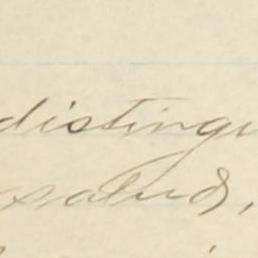 distingu
salud,